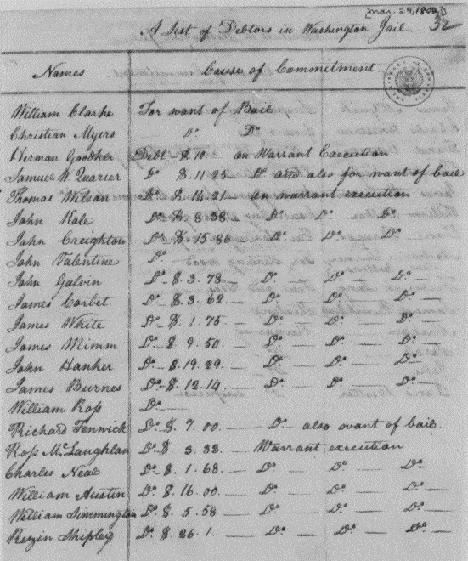 [Mar. 29, 1802]
A List of Debtors in Washington Jail 32
Names Cause of Commetment
William Clarke For want of Bail
Christian Myers Do Do
Herman Goodher Debt $.10 on Warrant Execution
Samuel W. Quarier Do $ 11.25 Do and also for want of bail
Thomas Wilson Do $. 14.21 on warrant execution
John Kale Do $ 8.38 Do Do Do
John Creighton Do $.15.86 Do Do Do
John Valentine Do
John Galvin Do $.3.78 Do Do Do
James Corbet Do $.3.62 Do Do Do
James White Do $.1.75 Do Do Do
James Mimm Do $.9.50 Do Do Do
John Hanker Do $.19.29 Do Do Do
James Burnes Do $.12.14 Do Do Do
William Ross Do
Richard Fenwick Do $.7.00 Do also want of bail
Ross McLaughlan Do $ 3.33 Warrant execution
Charles Neal Do $.1.68 Do Do Do
William Austin Do $.16.00 Do Do Do
William Simmington Do $.5.58 Do Do Do
Rezin Shipley Do $.26.1 Do Do Do